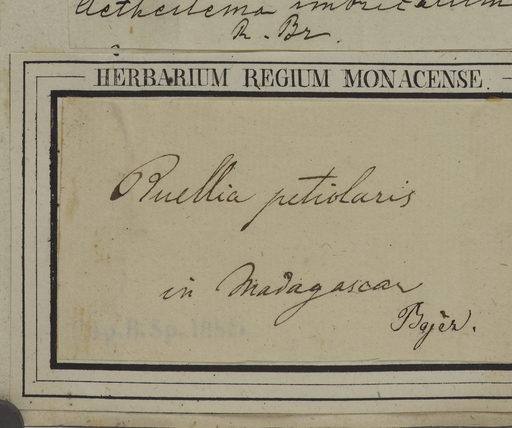 Aetheilema imbricatum
R. Br.
HERBARIUM REGIUM MONACENSE.
Ruellia petiolaris
in Madagascar
Bojer.